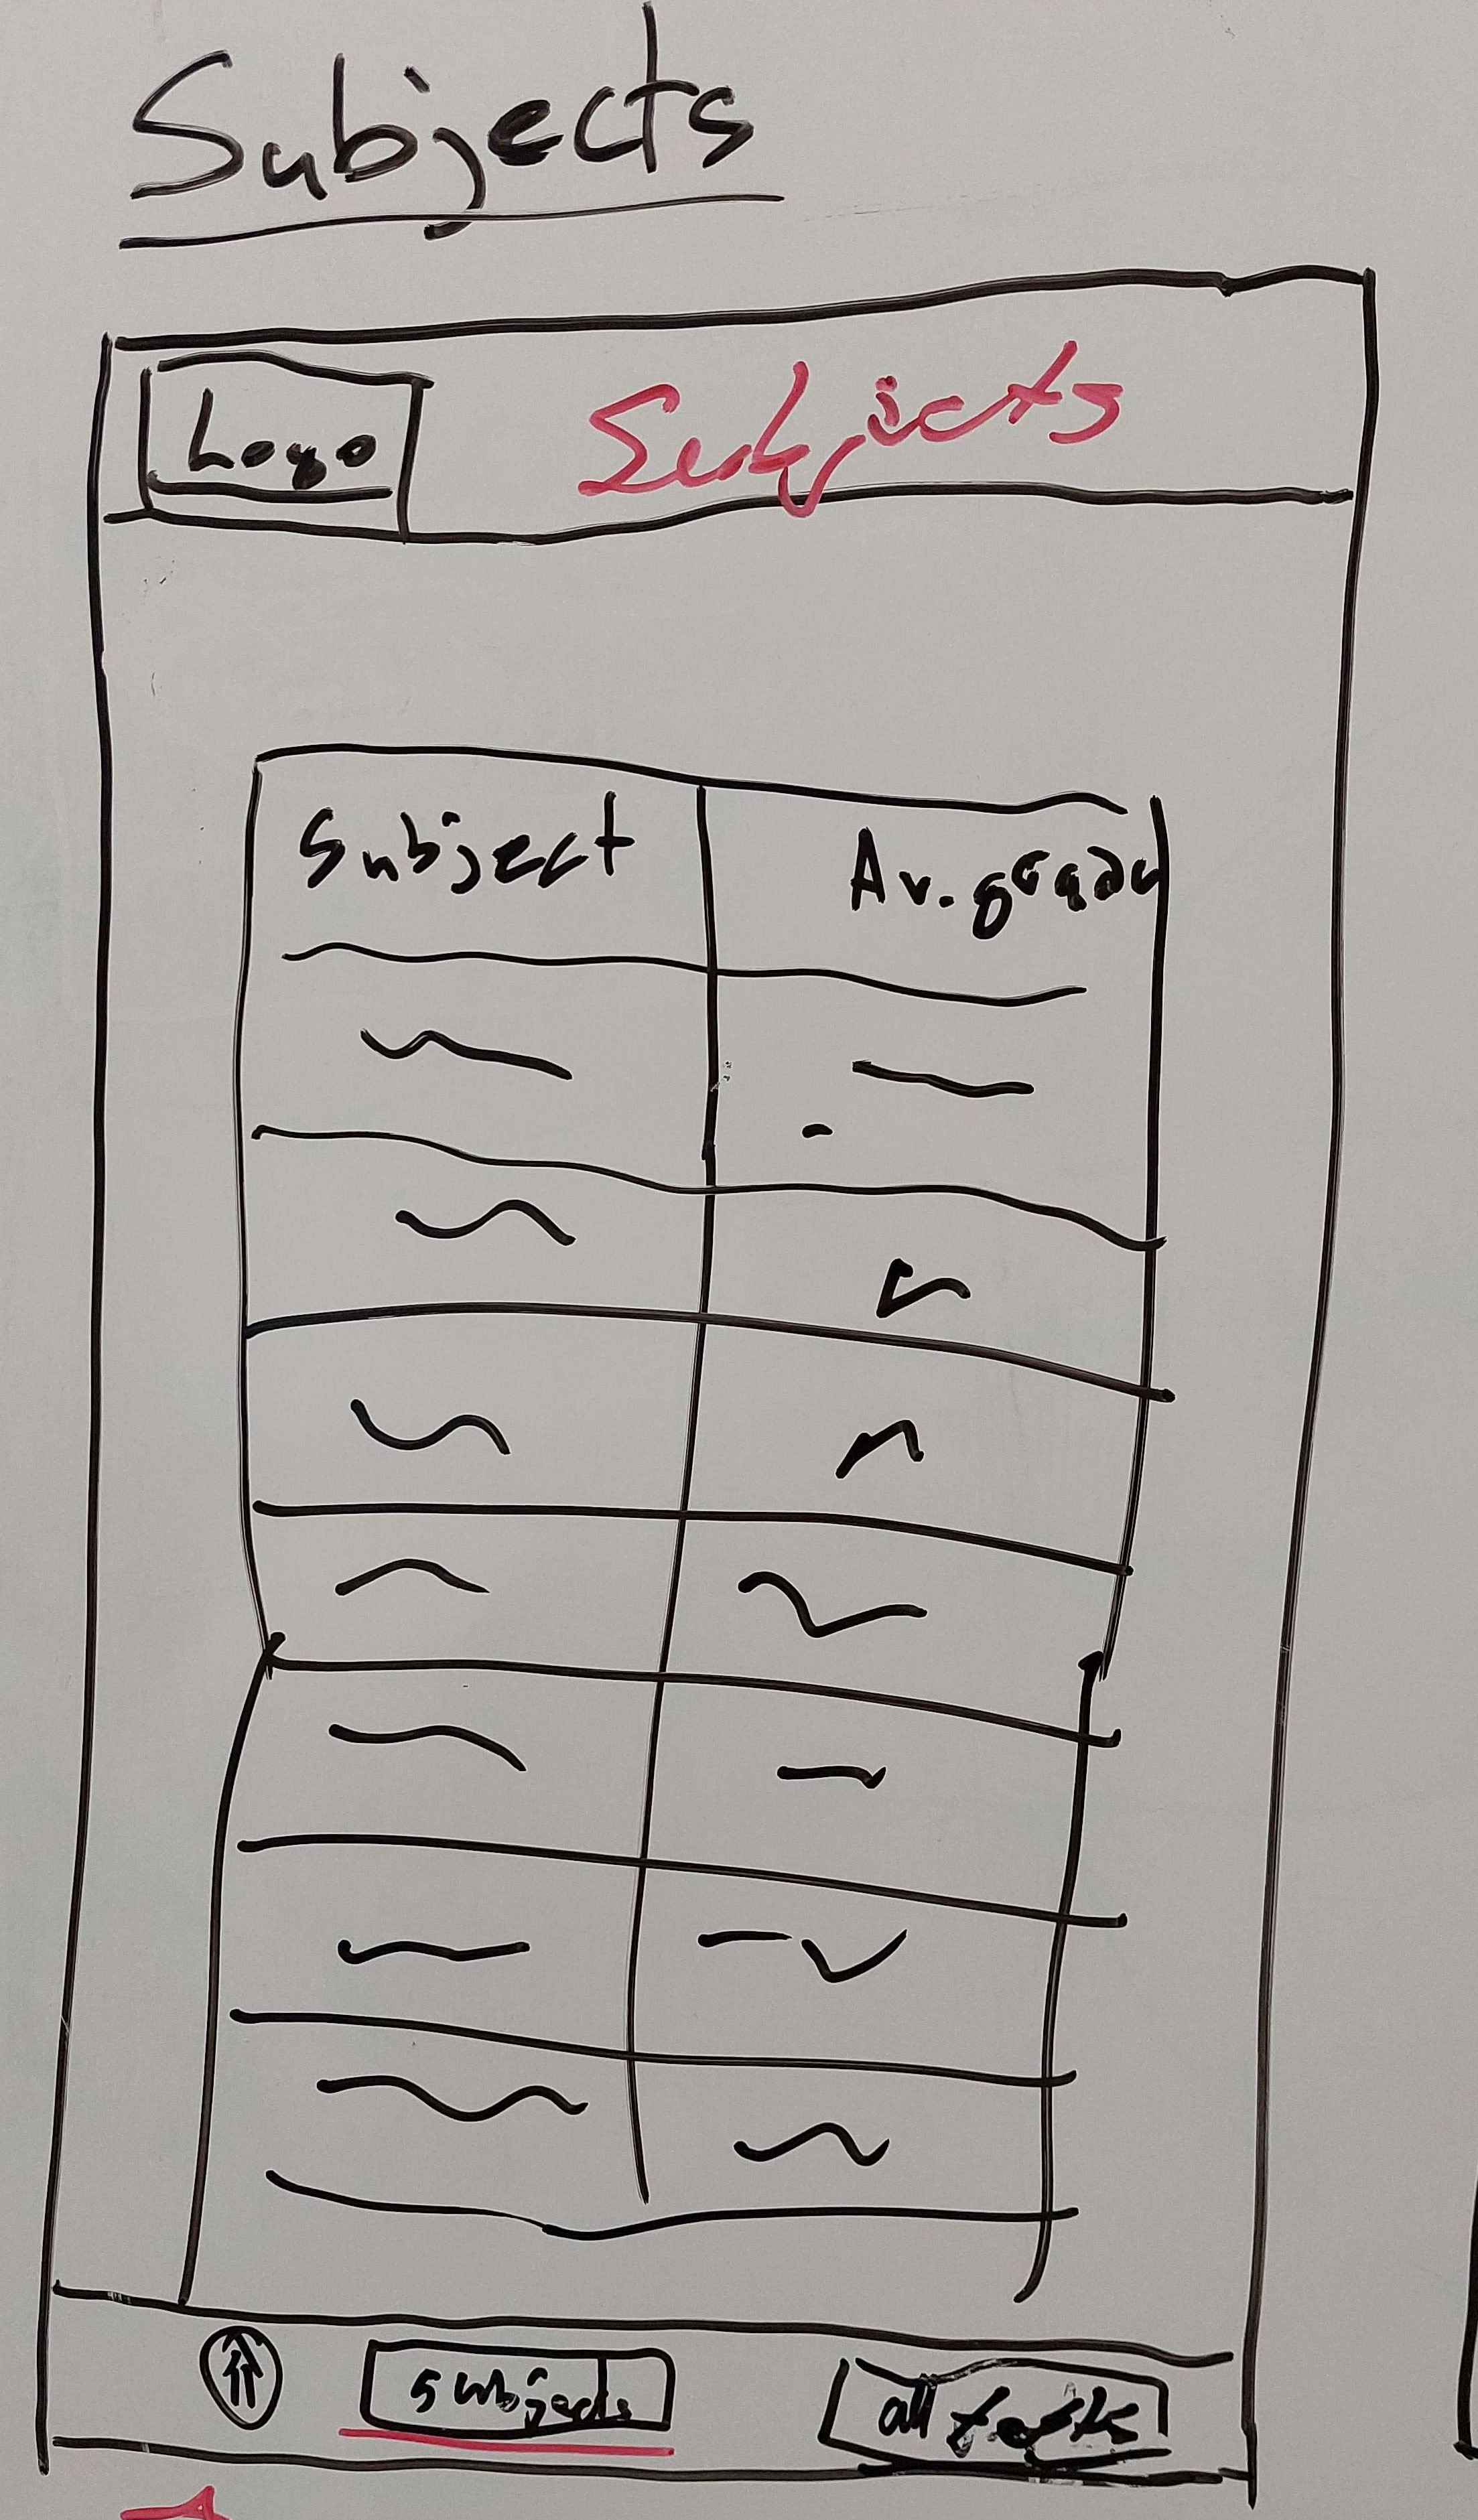 Subjects
Logo
Subjects
Subject
Av. grade
subjects
all